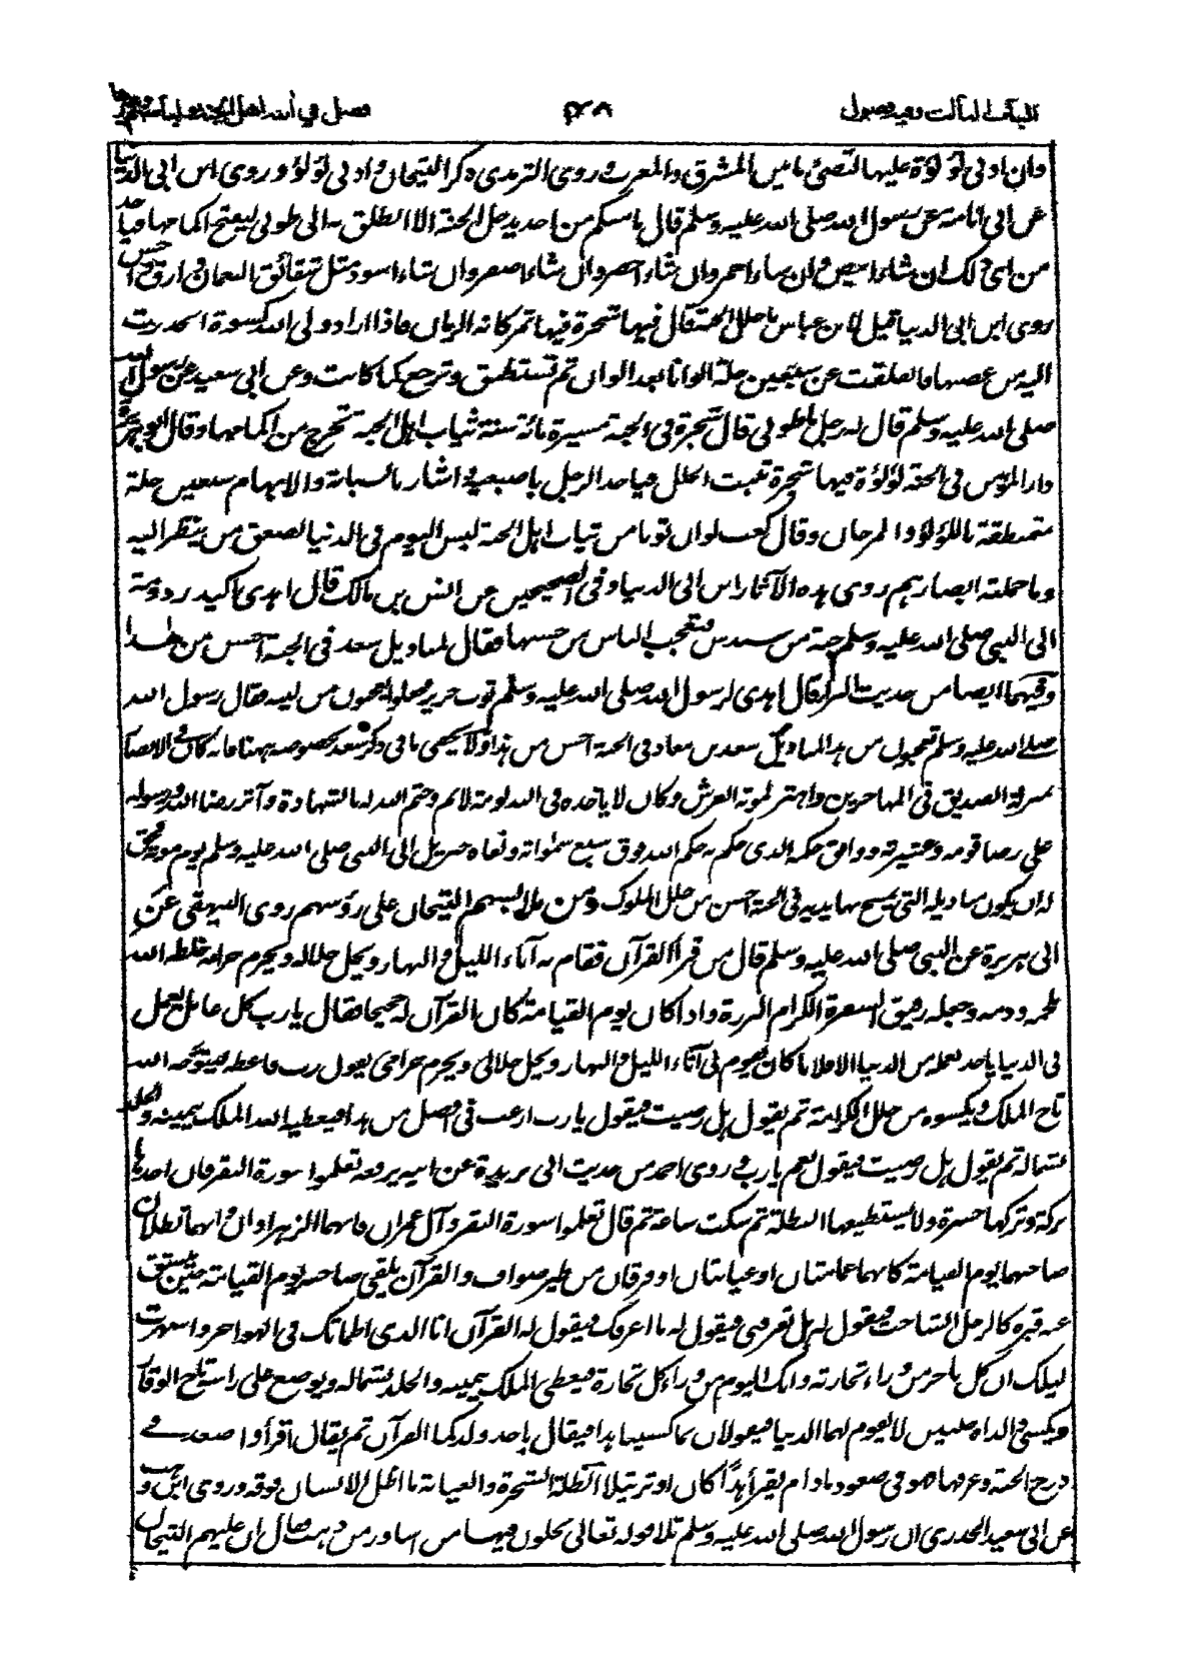 الباب الثالث وفيه فصول ٢٧٨ فصل في
وان ادنى لؤلؤة عليها لتضئ ما بين المشرق والمغرب وروى الترمذي ذكر التيجان وادنى لؤلؤ وروى ابن ابي الدنيا
عن ابي امامة عن رسول الله صلى الله عليه وسلم قال ما منكم من احد يدخل الجنة الا انطلق به الى طوبى ليفتح اكمامها فياخذ
من اى ذلك ان شاء ابيض وان شاء احمر وان شاء اخضر وان شاء اصفر وان شاء اسود مثل شقائق النعمان وارق واحسن
روى ابن ابي الدنيا قيل لابن عباس ما حلل الجنة قال فيها شجرة فيها ثمر كانه الرمان فاذا اراد ولى الله كسوة انحدرت
اليه من غصنها فانفلقت عن سبعين حلة الوانا بعد الوان ثم تستطبق وترجع كما كانت وعن ابي سعيد عن رسول الله
صلى الله عليه وسلم قال له رجل ما طوبى قال شجرة في الجنة مسيرة مائة سنة ثياب اهل الجنة تخرج من اكمامها وقال ابو هريرة
دار المؤمن في الجنة لؤلؤة فيها شجرة تنبت الحلل فياخذ الرجل باصبعيه واشار بالسبابة والابهام سبعين حلة
متمنطقة باللؤلؤ والمرجان وقال كعب لو ان ثوبا من ثياب اهل الجنة لبس اليوم في الدنيا لصعق من ينظر اليه
وما حملته ابصارهم روى هذه الآثار ابن ابي الدنيا وفي الصحيحين عن انس بن مالك قال اهدى اكيدر دومة
الى النبي صلى الله عليه وسلم جبة من سندس فتعجب الناس من حسنها فقال لمناديل سعد في الجنة احسن من هذا
وفيهما ايضا من حديث البراء قال اهدى لرسول الله صلى الله عليه وسلم ثوب حرير فجعلوا يعجبون من لينه فقال رسول الله
صلى الله عليه وسلم تعجبون من هذا لمناديل سعد بن معاذ في الجنة احسن من هذا ولا يخفى ما في ذكر سعد بخصوصه ههنا فانه كان في الانصار
بمنزلة الصديق في المهاجرين واهتز لموته العرش وكان لا ياخذه في الله لومة لائم وختم الله له بالشهادة وآثر رضا الله ورسوله
على رضا قومه وعشيرته ووافق حكمه الذى حكم به حكم الله فوق سبع سموات ونعاه جبريل الى النبي صلى الله عليه وسلم يوم موته فحق
له ان يكون مناديله التى يمسح بها يديه في الجنة احسن من حلل الملوك ومن ملابسهم التيجان على رؤسهم روى البيهقى عن
ابي هريرة عن النبي صلى الله عليه وسلم قال من قرأ القرآن فقام به آناء الليل والنهار ويحل حلاله ويحرم حرامه خلطه الله
بلحمه ودمه وجعله رفيق السفرة الكرام البررة واذا كان يوم القيامة كان القرآن له حجيجا فقال يا رب كل عامل يعمل
في الدنيا ياخذ بعمله من الدنيا الا فلانا كان يقوم في آناء الليل والنهار ويحل حلالى ويحرم حرامى يقول رب فاعطه فيتوجه الله
تاج الملك ويكسوه من حلل الكرامة ثم يقول هل رضيت فيقول يا رب ارغب في افضل من هذا فيعطيه الله الملك بيمينه والخلد
بشماله ثم يقول هل رضيت فيقول نعم يا رب وروى احمد من حديث ابي بريدة عن ابيه يرفعه تعلموا سورة البقرة فان اخذها
بركة وتركها حسرة ولا يستطيعها البطلة ثم سكت ساعة ثم قال تعلموا سورة البقرة وآل عمران فانهما الزهراوان وانهما تظلان
صاحبهما يوم القيامة كانهما غمامتان او غيابتان او فرقان من طير صواف والقرآن يلقى صاحبه يوم القيامة حين ينشق
عنه قبره كالرجل الشاحب فيقول له هل تعرفنى فيقول له ما اعرفك فيقول له القرآن انا الذى اظمأتك في الهواجر واسهرت
ليلك ان كل تاجر من وراء تجارته وانك اليوم من وراء كل تجارة فيعطى الملك بيمينه والخلد بشماله ويوضع على راسه تاج الوقار
ويكسى والداه حلتين لا يقوم لهما الدنيا فيقولان بما كسينا هذا فيقال باخذ ولدكما القرآن ثم يقال اقرأ واصعد في
درج الجنة وغرفها فهو في صعود ما دام يقرأ هذًا كان او ترتيلا الظلة الشجرة والغيابة ما اظل الانسان فوقه وروى ابن وهب
عن ابي سعيد الخدرى ان رسول الله صلى الله عليه وسلم تلا قوله تعالى يحلون فيها من اساور من ذهب فقال ان عليهم التيجان